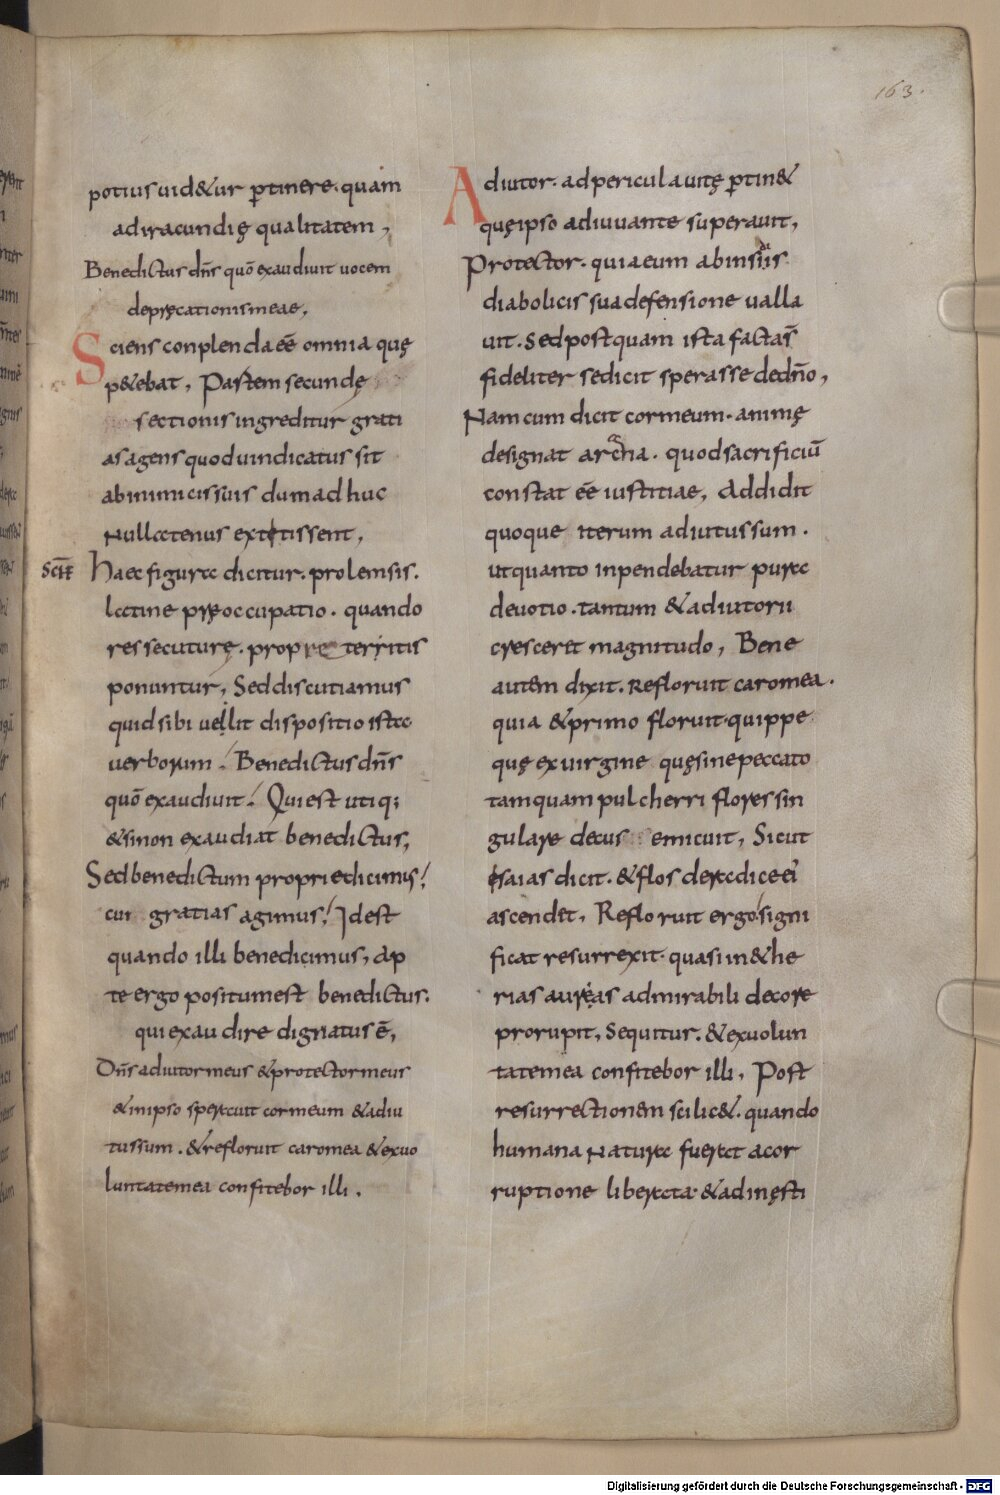 163.
potius uid&ur ꝑtinere. quam
ad iracundię qualitatem,
Benedictus dn̄s quō exaudiuit uocem
depręcationis meae,
Sciens conplenda eē omnia quę
p&ebat, Partem secundę
sectionis ingreditur grati
as agens quod uindicatus sit
ab inimicis suis dum adhuc
nullatenus extitissent,
Haec figura dicitur. prolemsis.
latine pręoccupatio. quando
res secuturę. pro pręteritis
ponuntur, Sed discutiamus
quid sibi uellit dispositio ista
uerborum! Benedictus dn̄s
quō exaudiuit! Qui est utiq;
& si non exaudiat benedictus,
Sed benedictum proprie dicimus!
cui gratias agimus! Idest
quando illi benedicimus, Ap
te ergo positum est benedictus.
qui exaudire dignatus ē,
Dn̄s adiutor meus & protector meus
& in ipso sperauit cor meum & adiu
tus sum. & refloruit caro mea & exuo
luntate mea confitebor illi.
Adiutor. ad pericula uitę ꝑtin&
quę ipso adiuuante superauit,
Protector. quia eum ab insidiis
diabolicis sua defensione ualla
uit. Sed postquam ista facta s̄
fideliter se dicit sperasse de dn̄o,
Nam cum dicit cor meum. animę
designat archana. quod sacrificiū
constat eē iustitiae, Addidit
quoque iterum adiutus sum.
ut quanto inpendebatur pura
deuotio. tantum & adiutorii
cresceret magnitudo, Bene
autem dixit. Refloruit caro mea.
quia & primo floruit. quippe
quę ex uirgine quę sine peccato
tamquam pulcherri flores sin
gulare decus emicuit, Sicut
esaias dicit. & flos de radice ei
ascendet, Refloruit ergo! signi
ficat resurrexit. quasi in &he
rias auras admirabili decore
prorupit, Sequitur. & ex uolun
tate mea confitebor illi, Post
resurrectionem scilic&. quando
humana natura fuerat a cor
ruptione liberata & ad inęsti
Digitalisierung gefördert durch die Deutsche Forschungsgemeinschaft - DFG